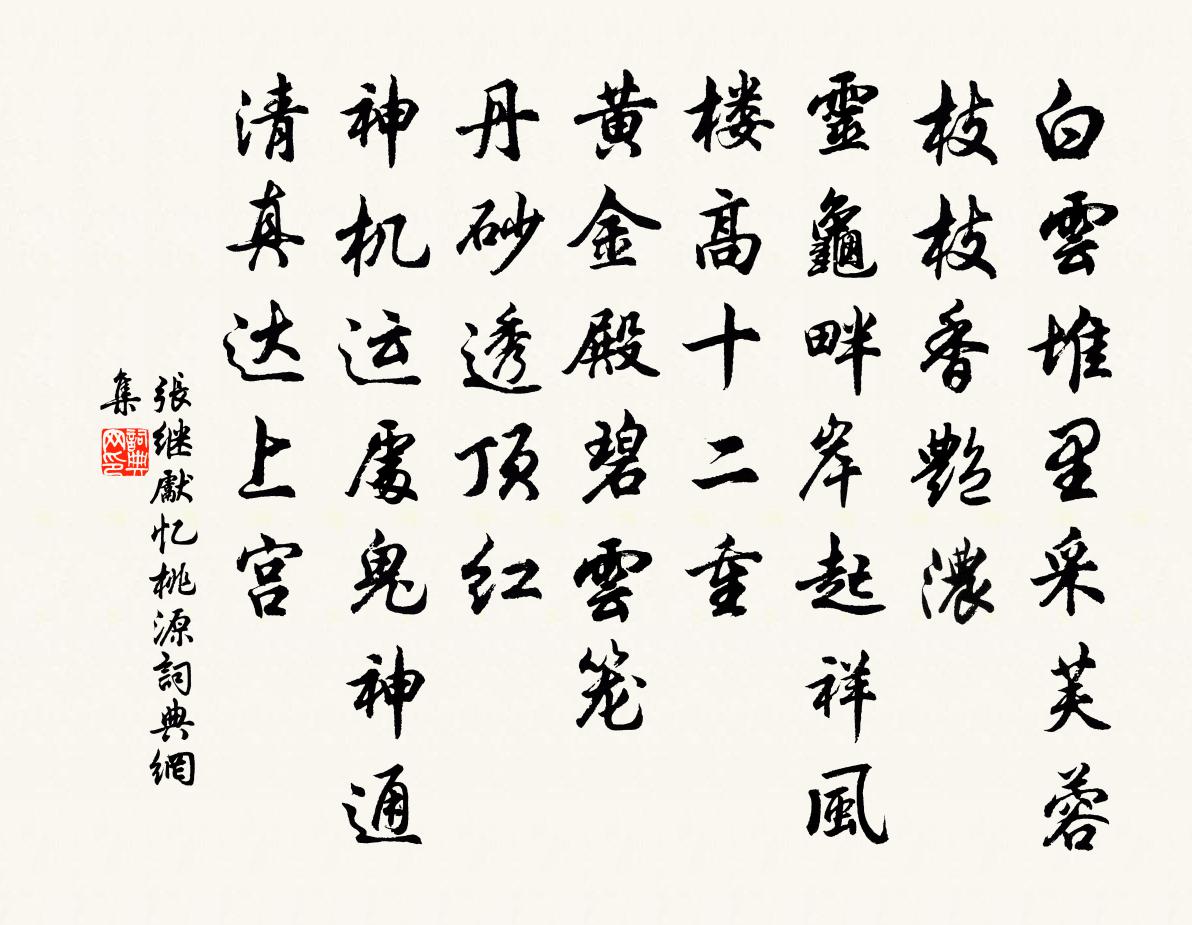 白雲堆里采芙蓉
枝枝香艷濃
靈龜畔岸起祥風
楼高十二重
黄金殿碧雲笼
丹砂透顶红
神机运處鬼神通
清真达上宫
張继獻忆桃源詞典網
集
詞典
网印